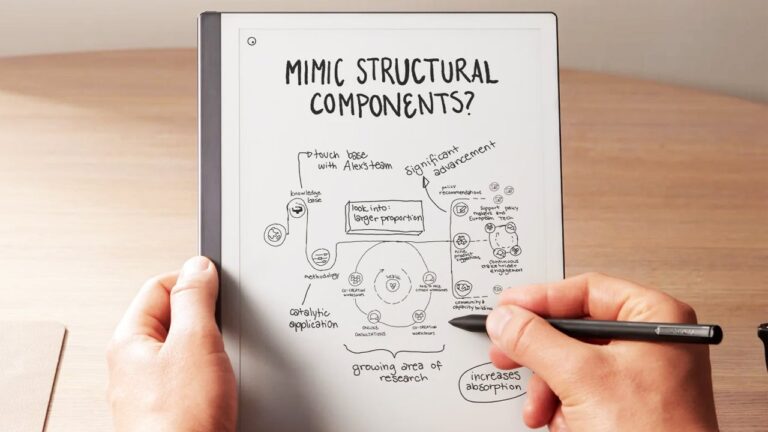 MIMIC STRUCTURAL
COMPONENTS?
touch base
with Alex's team
significant
advancement
knowledge
base
policy
recommendations
look into:
larger proportion
support policy
European Tech
methodology
continuous
stakeholder
engagement
co-creation
workshops
catalytic
application
community &
capacity building
ONLINE
CONSULTATIONS
co-creation
workshops
growing area of
research
increases
absorption